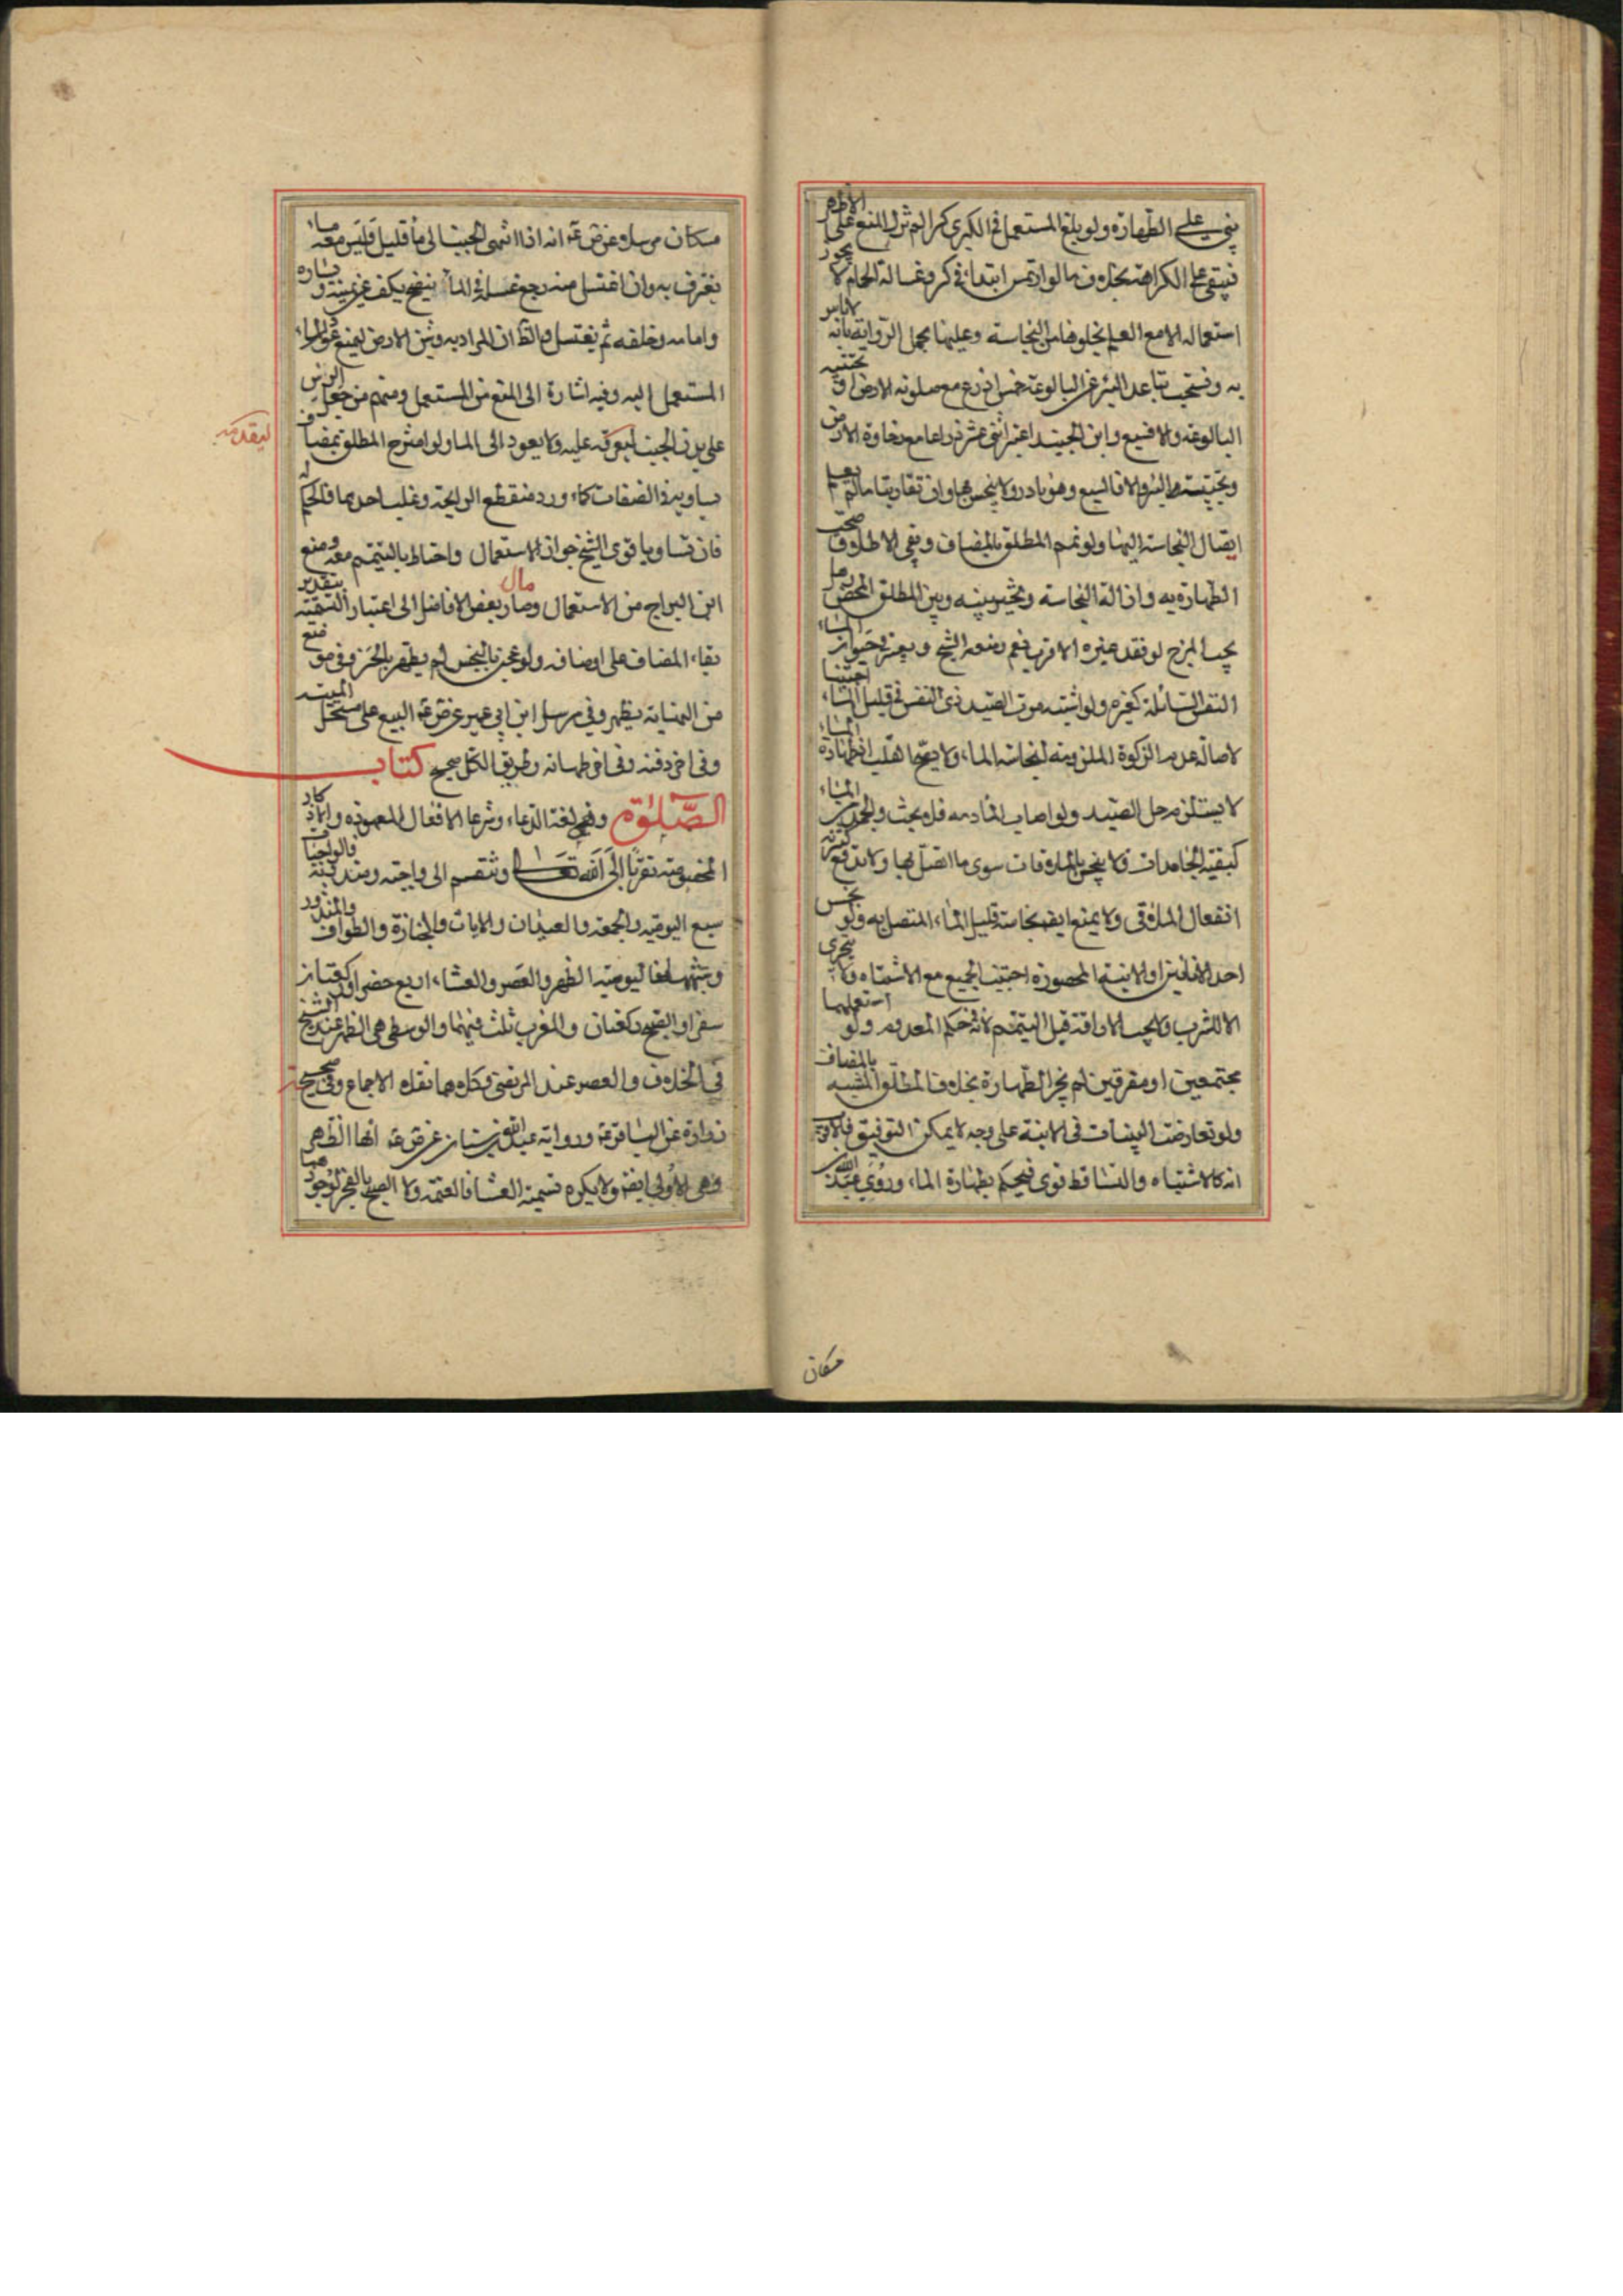 بنى على الطهارة ولو بلغ المستعمل فى الكبرى كرا لم يزل المنع على الاظهر
فيبقى على الكراهة بخلاف ما لو ارتمس ابتداء فى كر وغسالة الحمام لا يجوز
استعماله الا مع العلم بخلوها من النجاسة وعليها يحمل الرواية بانه لا باس
به ويستحب تباعد البئر عن البالوعة خمس اذرع مع صلوبة الارض او تحتية
البالوعة والا فسبع وابن الجنيد اعتبر اثنى عشر ذراعا مع رخاوة الارض
وتحتية البئر والا فالسبع وهو نادر ولا ينجس بها وان تقاربتا ما لم يعلم
ايصال النجاسة اليها ولو تمم المطلق بالمضاف وبقى الاطلاق صحت
الطهارة به وازالة النجاسة ويخير بينه وبين المطلق المحض وهل
يجب المزج لو فقد غيره الاقرب نعم ومنعه الشيخ ويعتبر
النفس السائلة كغيره ولو اشتبه موت الصيد ذى النفس فى قليل الماء اجتنبا
لاصالة عدم الزكوة الملزومة لنجاسة الماء ولا يتجه هنا طهارة الماء
لا يستلزم حل الصيد ولو اصاب
كبقية الجامدات فلا ينجس بالملاقات سوى ما اتصل بها ولا تدفع كثرته
انفعال الملاقى ولا يمنع ايضا نجاسة قليل الماء المتصل به ولو نجس
احد الانائين او الانية المحصورة اجتنب الجميع مع الاشتباه ولا يتحرى
الا للشرب ولا يجب الاراقة قبل التيمم لانه فى حكم المعدوم ولو استعملهما
مجتمعين او متفرقين لم يجز الطهارة بخلاف المطلق المشتبه بالمضاف
ولو تعارضت البينات فى الانية على وجه لا يمكن التوفيق فالاقرب
انه كالاشتباه والتساقط قوى فيحكم بطهارة الماء وروى عبد الله بن
مسكان
مسكان مرسلا عن ص ع انه اذا انتهى الجنب الى ماء قليل وليس معه ما
يغترف به وان اغتسل منه رجع غسله فى الماء ينضح بكف عن يمينه ويساره
وامامه وخلفه ثم يغتسل والظ ان المراد به رش الارض ليمنع عود الماء
المستعمل اليه وفيه اشارة الى المنع من المستعمل ومنهم من جعل الرش
على بدن الجنب عليه ولا يعود الى الماء ولو امتزج المطلق بمضاف
يساويه فى الصفات كماء ورد منقطع الرايحة وغلب احدهما فالحكم له
فان تساويا قوى الشيخ جواز الاستعمال واحتاط بالتيمم معه ومنع
ابن البراج من الاستعمال وصار بعض الافاضل الى اعتبار القيمة بتقدير
مال
بقاء المضاف على اوصافه ولو عجن بالنجس لم يطهر بالخبز وفى موضع
من النهاية يطهر وفى مرسل ابن ابى عمير عن ص ع البيع على مستحل الميتة
وفى اخر دفنه وفى اخر طهارته وطريق الكل صحيح كتاب
الصلوة وهى لغة الدعاء وشرعا الافعال المعهودة والاذكار
المخصوصة تقربا الى الله تعالى وتنقسم الى واجبة ومندوبة فالواجبات
سبع اليومية والجمعة والعيدان والايات والجنازة والطواف والمنذور
وشبهها فاليومية الظهر والعصر والعشاء اربع حضرا وركعتان
سفرا والصبح ركعتان والمغرب ثلث فيهما والوسطى هى الظهر عند الشيخ
فى الخلاف والعصر عند المرتضى وكلاهما نقلا الاجماع وفى صحيحة
زرارة عن الباقر ع ورواية عبد الله بن سنان عن ص ع انها الظهر
وهى الاولى ايضا ولا يكره تسمية العشا بالعتمة ولا الصبح بالفجر لوجود